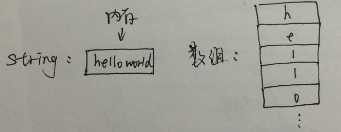 内存
↓
string: helloworld
数组:
h
e
l
l
o
⋮